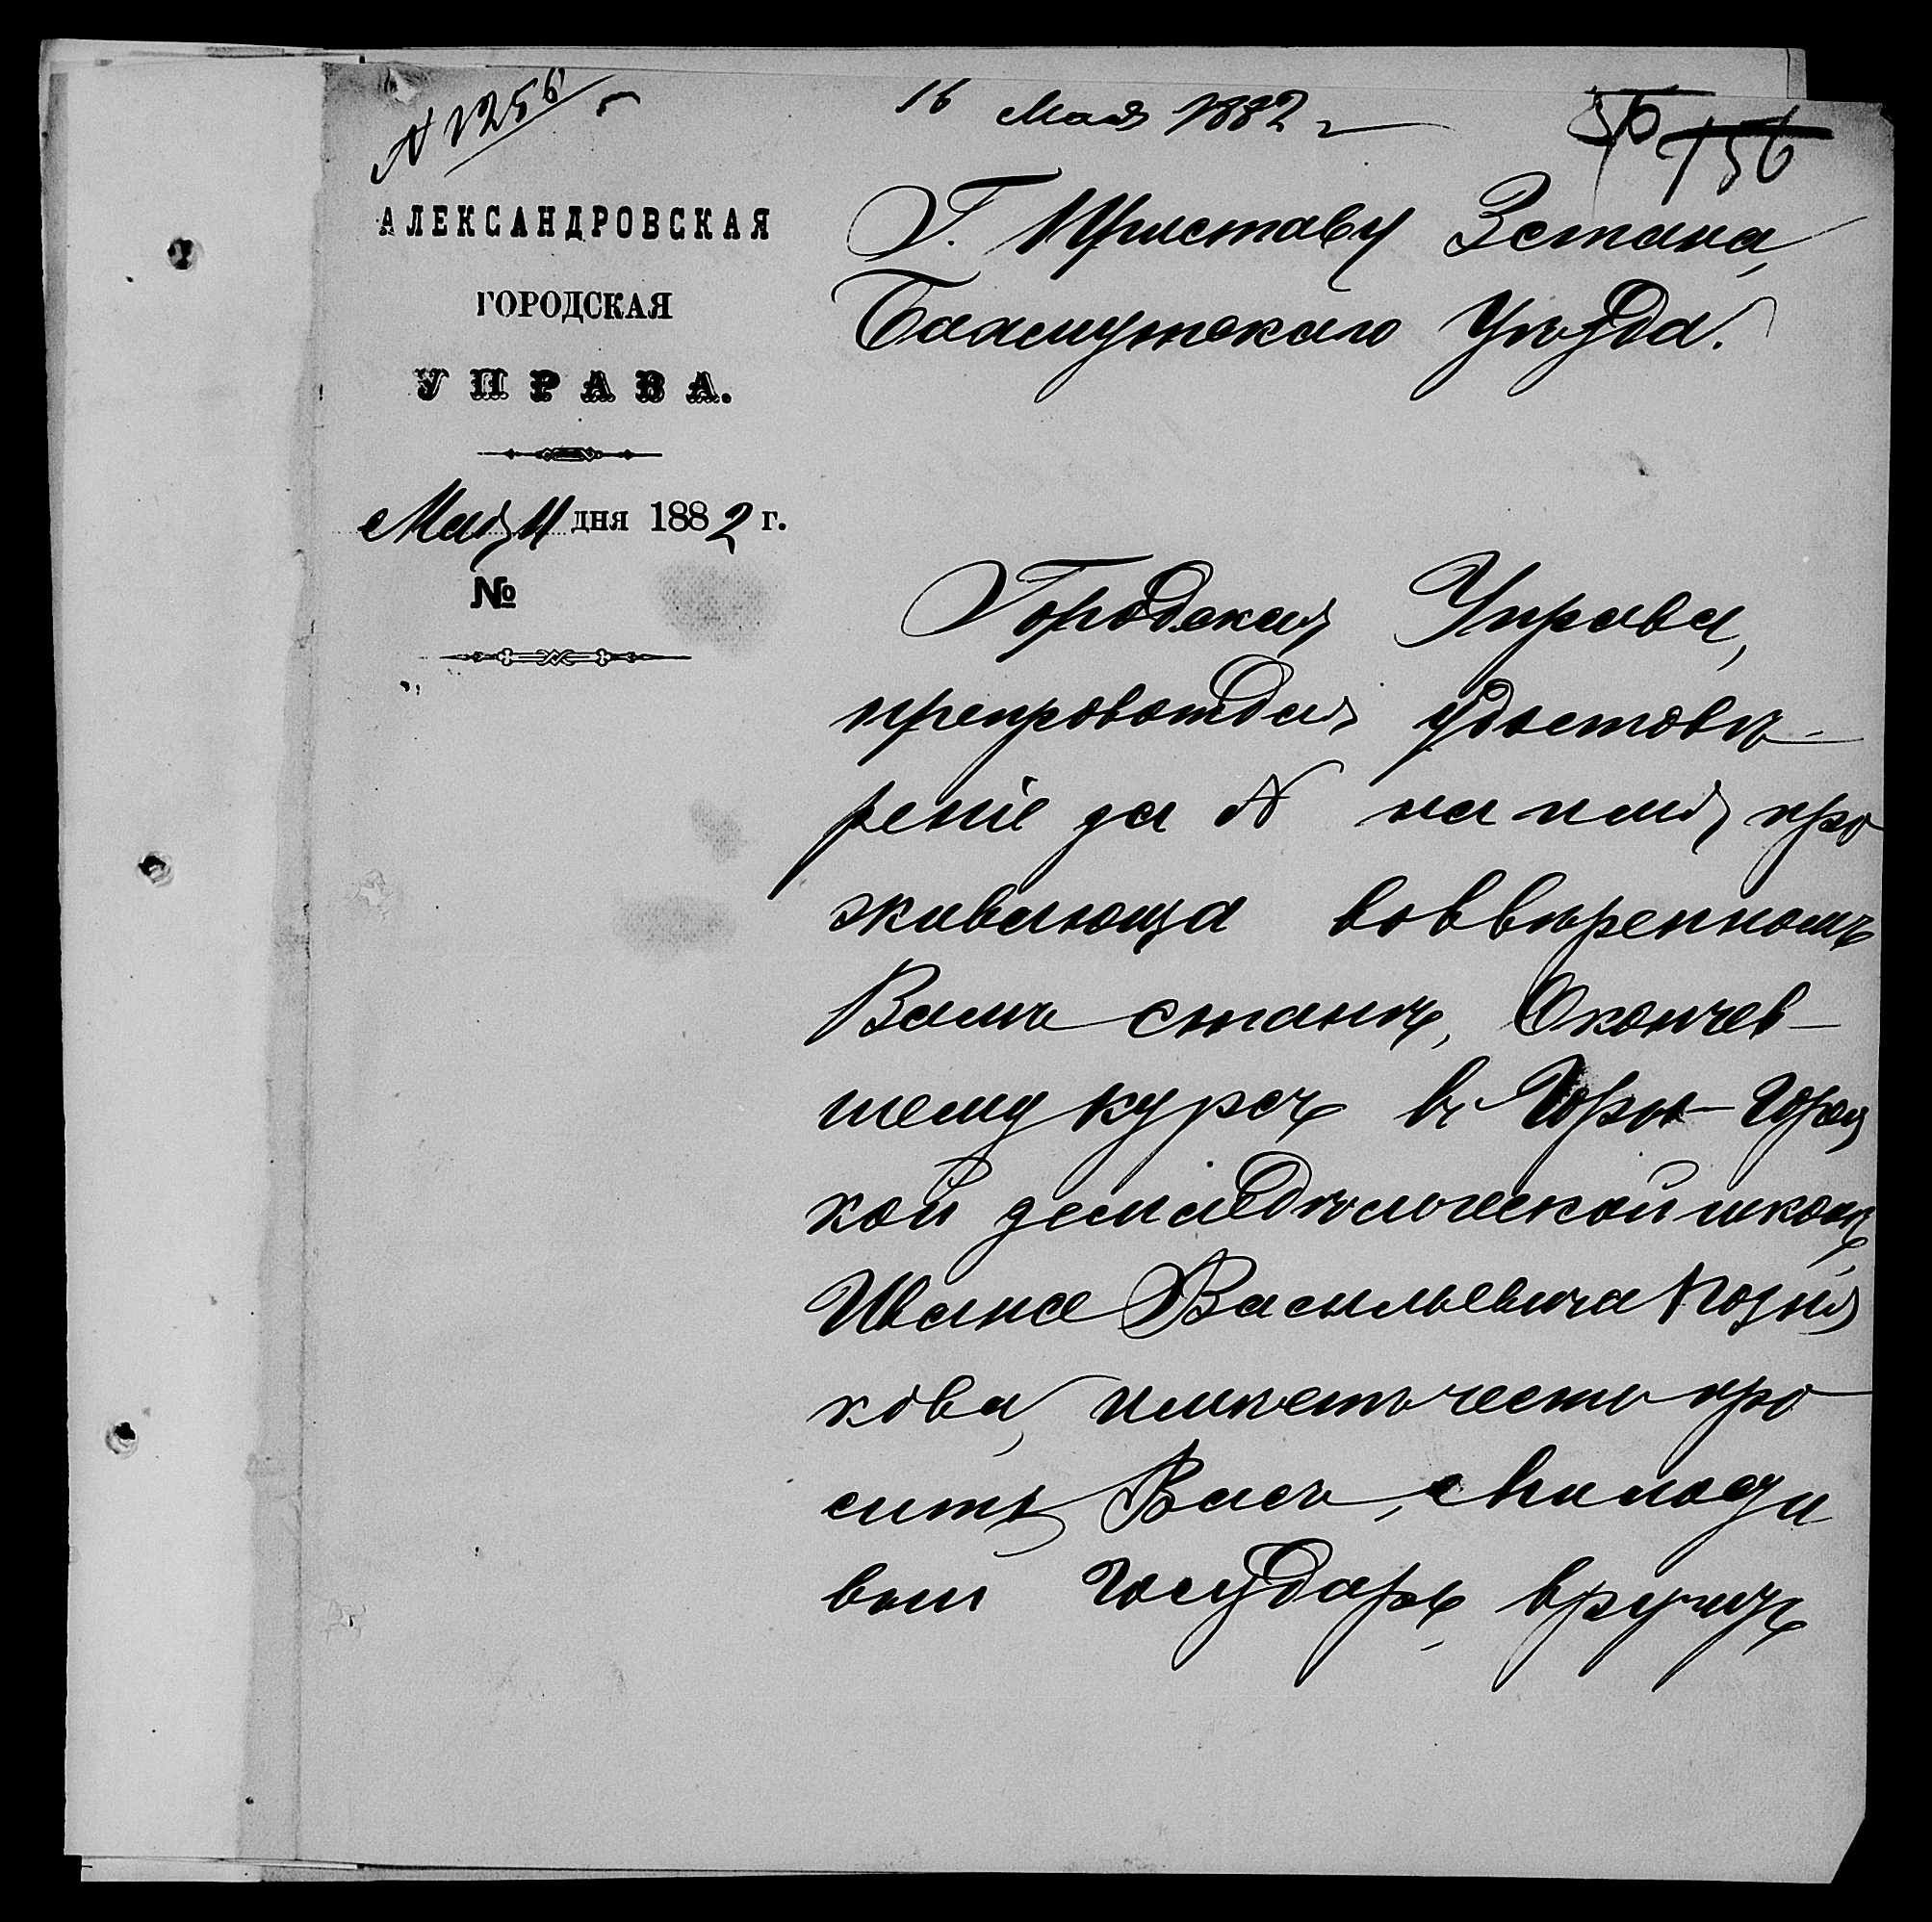 № 1256
16 Мая 1882 г
156
АЛЕКСАНДРОВСКАЯ
ГОРОДСКАЯ
УПРАВА.
Мая 11 дня 1882 г.
№
Г. Приставу 3 стана,
Бахмутскаго Уѣзда.
Городская Управа,
препровождая удостовѣ-
реніе за № на имя про
живающа во ввѣренномъ
Вамъ станѣ, Окончев-
шему курсъ въ Горы-Горец
кой земледѣльческой школѣ,
Ивана Васильевича Позня
кова, имѣетъ честь про
сить Васъ, Милости
вый Государь, вручить